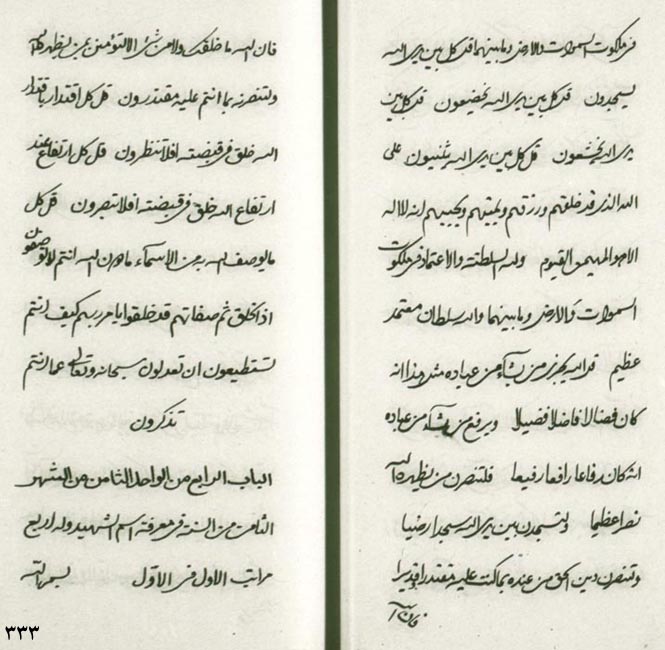 فی ملکوت السموات والارض وما بینهما قل کل بین یدی الله
یسجدون قل کل بین یدی الله یخضعون قل کل بین
یدی الله یخشعون قل کل بین یدی الله یثنیون علی
الله الذی قد خلقهم ورزقهم ویمیتهم ویحییهم انه لا اله
الا هو المهیمن القیوم ولله السلطنة والاعتماد فی ملکوت
السموات والارض وما بینهما والله سلطان معتمد
عظیم قل الله یجزی من یشاء من عباده مثل هذا انه
کان فضالا فاضلا فضیلا ویرفع من یشاء من عباده
انه کان رفاعا رافعا رفیعا فلتنصرن من یظهره الله
نصرا عظیما ولتسجدن بین یدی الله سجدا رضیا
ولتنصرن دین الحق من عنده بما کنت علیه مقتدرا قدیرا
فان الله
فان الله ما خلقک ولا من شئ الا لتؤمنن بمن یظهره الله
ولتنصرنه بما انتم علیه مقتدرون قل کل اقتدار باقتدار
الله خلق فی قبضته افلا تنظرون قل کل ارتفاع عند
ارتفاع الله خلق فی قبضته افلا تبصرون قل کل
ما یوصف الله به من الاسماء ما هو من الله انتم لا توصفون
اذ الخلق ثم صفاتهم قد خلقوا بامر ربهم کیف انتم
تستطیعون ان تعدلون سبحانه وتعالی عما انتم
تذکرون
الباب الرابع من الواحد الثامن من الشهر
الثامن من السنة فی معرفة اسم الشهید وله اربع
مراتب الاول فی الاول بسم الله
۳۳۳